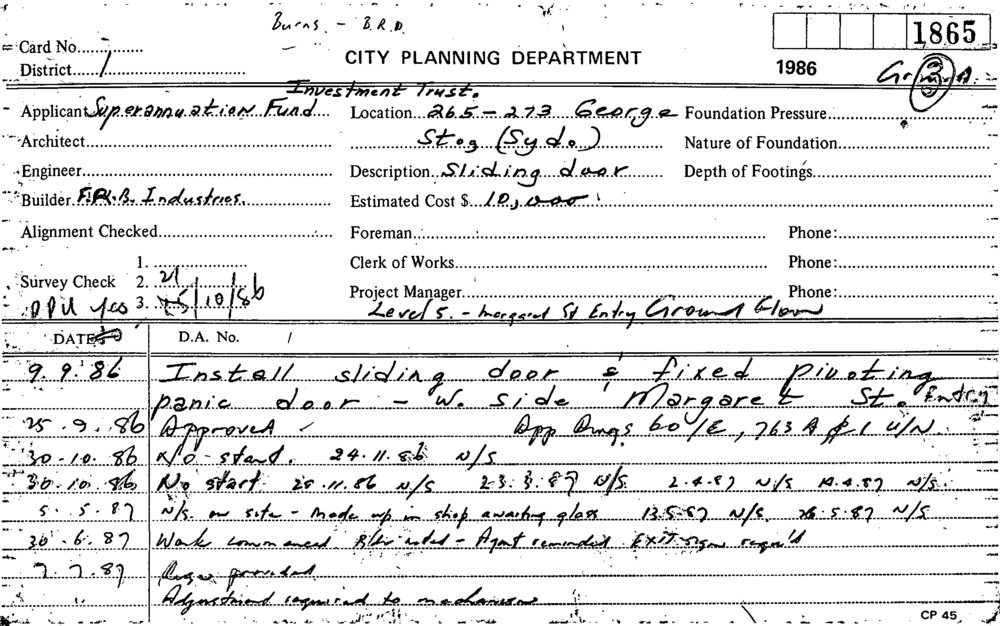 Burns. - B.R.D.
1865
Card No.
CITY PLANNING DEPARTMENT
District 1
1986
Investment Trust.
Applicant Superannuation Fund Location 265-273 George Foundation Pressure
Architect (Syd.) Nature of Foundation
Engineer Description Sliding door Depth of Footings
Builder Industries. Estimated Cost $ 10,000
Alignment Checked Foreman Phone:
1. Clerk of Works Phone:
Survey Check 2. 21
3. 10/86 Project Manager Phone:
Level 5. - Margaret St Entry Ground Floor
DATE D.A. No.
9.9.86 Install sliding door & fixed pivoting
panic door - W. side Margaret St. Entry
25.9.86 Approved App Dwgs 60/E, 763 A
30.10.86 No start. 24.11.86 N/S
30.10.86 No start 28.11.86 N/S 23.3.87 N/S 2.4.87 N/S 14.4.87 N/S
5.5.87 N/S on site - Made up in shop awaiting glass 13.5.87 N/S. 26.5.87 N/S
30.6.87 Work commenced noted - Agent reminded EXIT sign requ'd
7.7.87 provided
" Adjustment required to mechanism
CP 45